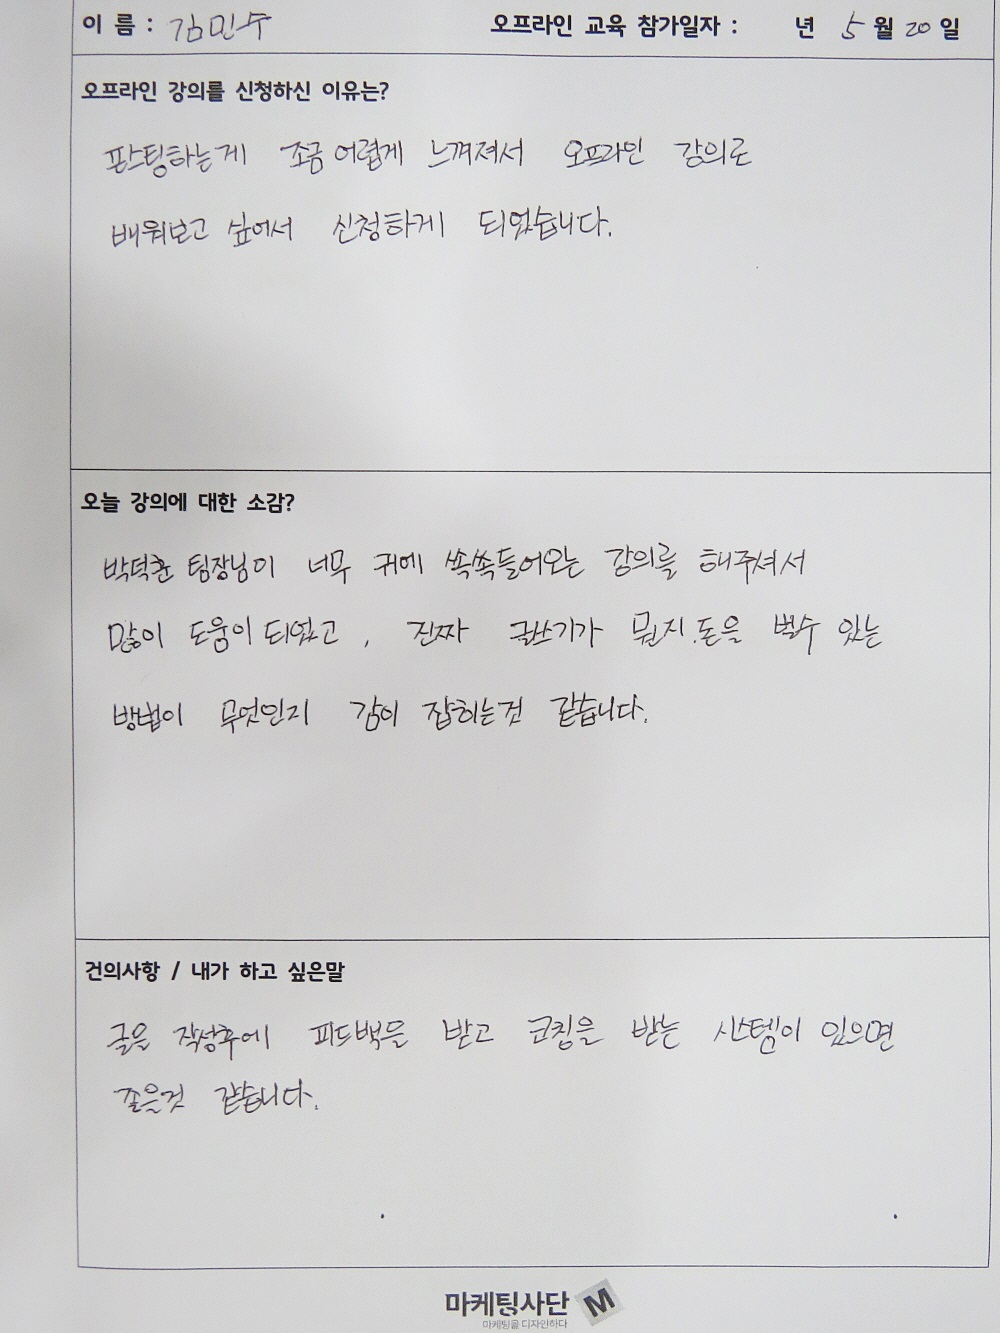 이 름 : 김민수 오프라인 교육 참가일자 : 년 5 월 20 일
오프라인 강의를 신청하신 이유는?
포스팅하는게 조금 어렵게 느껴져서 오프라인 강의로
배워보고 싶어서 신청하게 되었습니다.
오늘 강의에 대한 소감?
박덕훈 팀장님이 너무 귀에 쏙쏙들어오는 강의를 해주셔서
많이 도움이 되었고, 진짜 글쓰기가 뭔지.돈을 벌수 있는
방법이 무엇인지 감이 잡히는것 같습니다.
건의사항 / 내가 하고 싶은말
글을 작성후에 피드백을 받고 코칭을 받는 시스템이 있으면
좋을것 같습니다.
마케팅사단 M
마케팅을 디자인하다